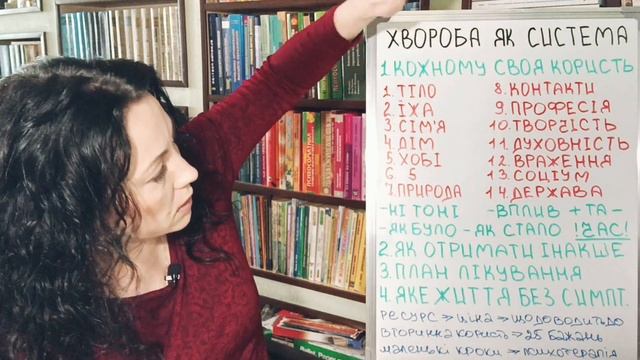 ХВОРОБА ЯК СИСТЕМА
1. КОЖНОМУ СВОЯ КОРИСТЬ
1. ТІЛО
2. ЇЖА
3. СІМ'Я
4. ДІМ
5. ХОБІ
6. 5
7. ПРИРОДА
8. КОНТАКТИ
9. ПРОФЕСІЯ
10. ТВОРЧІСТЬ
11. ДУХОВНІСТЬ
12. ВРАЖЕННЯ
13. СОЦІУМ
14. ДЕРЖАВА
- НІ ТОНІ - ВПЛИВ + ТА -
- ЯК БУЛО - ЯК СТАЛО !ЧАС!
2. ЯК ОТРИМАТИ ІНАКШЕ
3. ПЛАН ЛІКУВАННЯ
4. ЯКЕ ЖИТТЯ БЕЗ СИМПТ.
РЕСУРС → ЦІНА →
ВТОРИННА КОРИСТЬ → 25 БАЖАНЬ
МАЛЕНЬКІ КРОКИ → ПСИХОТЕРАПІЯ